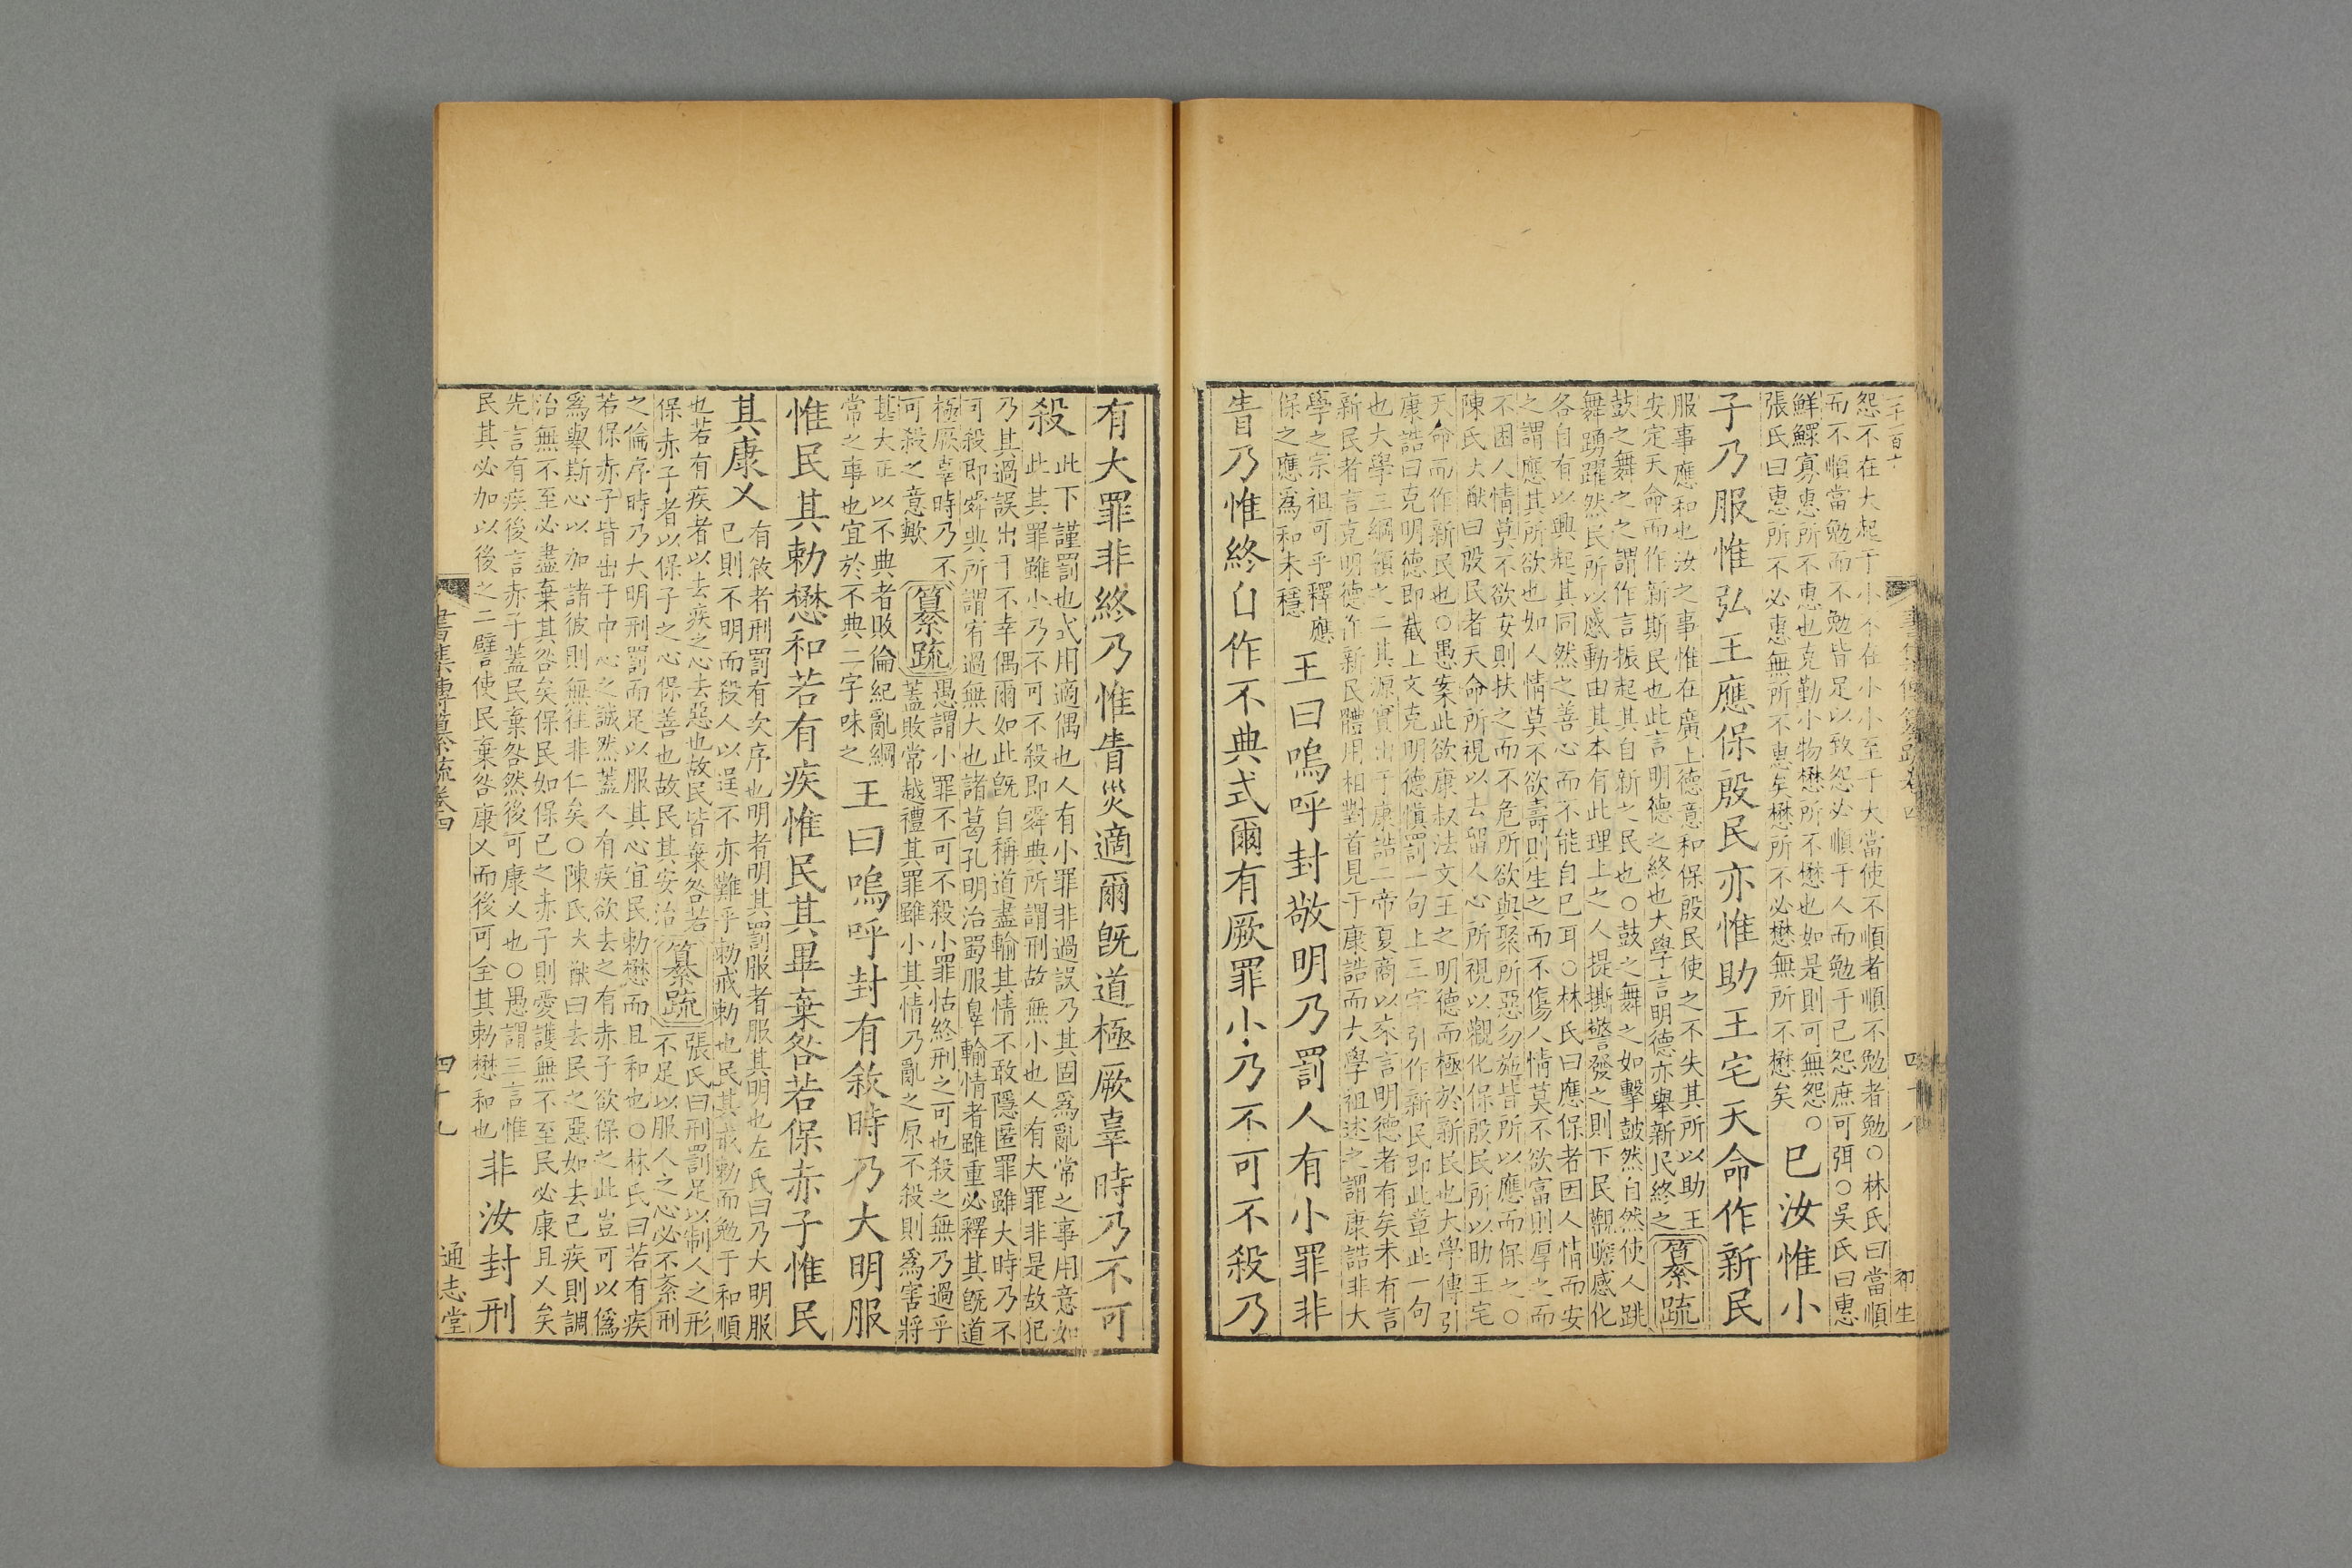 怨不在大起于小不在小小至于大當使不順者順不勉者勉○林氏曰當順
而不順當勉而不勉皆足以致怨必順于人而勉于己怨庶可弭○吳氏曰惠
鮮鰥寡惠所不惠也克勤小物懋所不懋也如是則可無怨○
張氏曰惠所不必惠無所不惠矣懋所不必懋無所不懋矣
已汝惟小
子乃服惟弘王應保殷民亦惟助王宅天命作新民
服事應和也汝之事惟在廣上德意和保殷民使之不失其所以助王
安定天命而作新斯民也此言明德之終也大學言明德亦舉新民終之
纂疏
鼓之舞之之謂作言振起其自新之民也○鼓之舞之如擊鼓然自然使人跳
舞踴躍然民所以感動由其本有此理上之人提撕警發之則下民觀瞻感化
各自有以興起其同然之善心而不能自已耳○林氏曰應保者因人情而安
之謂應其所欲也如人情莫不欲壽則生之而不傷人情莫不欲富則厚之而
不困人情莫不欲安則扶之而不危所欲與聚所惡勿施皆所以應而保之○
陳氏大猷曰殷民者天命所視以去留人心所視以觀化保殷民所以助王宅
天命而作新民也○愚案此欲康叔法文王之明德而極於新民也大學傳引
康誥曰克明德即截上文克明德慎罰一句上三字引作新民即此章此一句
也大學三綱領之二其源實出于康誥二帝夏商以來言明德者有矣未有言
新民者言克明德作新民體用相對首見于康誥而大學祖述之謂康誥非大
學之宗祖可乎釋應
保之應爲和未穩
王曰嗚呼封敬明乃罰人有小罪非
眚乃惟終自作不典式爾有厥罪小乃不可不殺乃
有大罪非終乃惟眚災適爾旣道極厥辜時乃不可
殺
此下謹罰也式用適偶也人有小罪非過誤乃其固爲亂常之事用意如
此其罪雖小乃不可不殺即舜典所謂刑故無小也人有大罪非是故犯
乃其過誤出于不幸偶爾如此旣自稱道盡輸其情不敢隱匿罪雖大時乃不
可殺即舜典所謂宥過無大也諸葛孔明治蜀服辠輸情者雖重必釋其旣道
極厥辜時乃不
可殺之意歟
纂疏
愚謂小罪不可不殺小罪怙終刑之可也殺之無乃過乎
蓋敗常越禮其罪雖小其情乃亂之原不殺則爲害將
甚大正以不典者敗倫紀亂綱
常之事也宜於不典二字味之
王曰嗚呼封有敘時乃大明服
惟民其勑懋和若有疾惟民其畢棄咎若保赤子惟民
其康乂
有敘者刑罰有次序也明者明其罰服者服其明也左氏曰乃大明服
己則不明而殺人以逞不亦難乎勑戒勑也民其戒勑而勉于和順
也若有疾者以去疾之心去惡也故民皆棄咎若
保赤子者以保子之心保善也故民其安治
纂疏
張氏曰刑罰足以制人之形
不足以服人之心必不紊刑
之倫序時乃大明刑罰而足以服其心宜民勑懋而且和也○林氏曰若有疾
若保赤子皆出于中心之誠然蓋人有疾欲去之有赤子欲保之此豈可以僞
爲舉斯心以加諸彼則無往非仁矣○陳氏大猷曰去民之惡如去己疾則調
治無不至必盡棄其咎矣保民如保己之赤子則愛護無不至民必康且乂矣
先言有疾後言赤子蓋民棄咎然後可康乂也○愚謂三言惟
民其必加以後之二譬使民棄咎康乂而後可全其勑懋和也
非汝封刑
書集傳纂疏卷四
四十九
通志堂